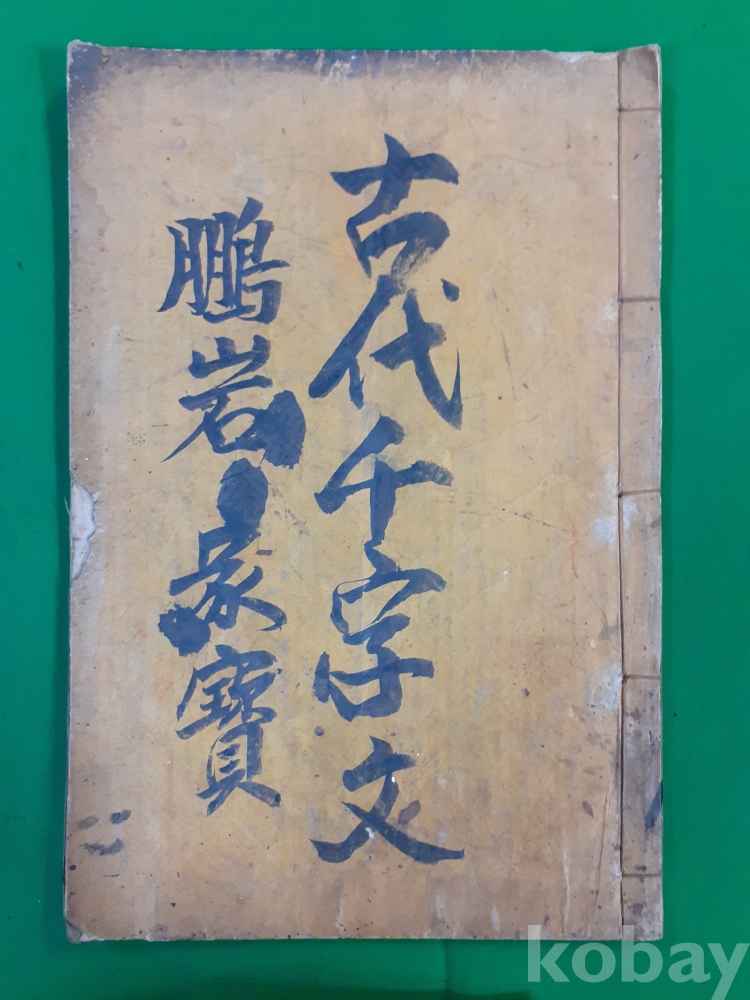 古代千字文
鵬岩家寶
kobay